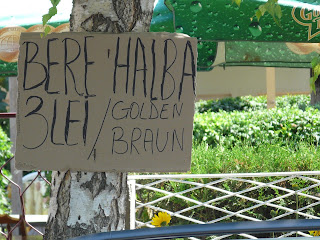 BERE 'HALBA
3LEI / GOLDEN
BRAUN